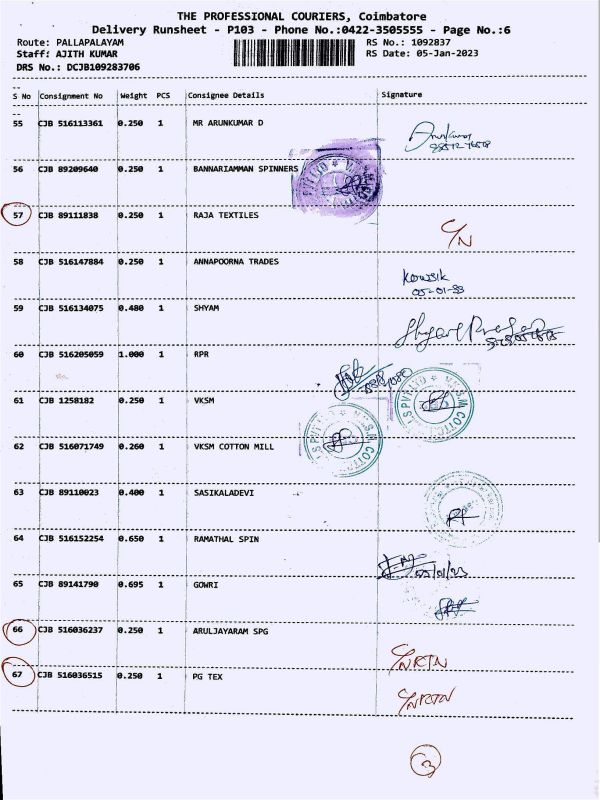 THE PROFESSIONAL COURIERS, Coimbatore
Delivery Runsheet - P103 - Phone No.:0422-3505555 - Page No.:6
Route: PALLAPALAYAM RS No.: 1092837
Staff: AJITH KUMAR RS Date: 05-Jan-2023
DRS No.: DCJB109283706
S No Consignment No Weight PCS Consignee Details Signature
55 CJB 516113361 0.250 1 MR ARUNKUMAR D
56 CJB 89209640 0.250 1 BANNARIAMMAN SPINNERS
57 CJB 89111838 0.250 1 RAJA TEXTILES C/N
58 CJB 516147884 0.250 1 ANNAPOORNA TRADES
Kowsik
59 CJB 516134075 0.480 1 SHYAM
60 CJB 516205059 1.000 1 RPR
61 CJB 1258182 0.250 1 VKSM
62 CJB 516071749 0.260 1 VKSM COTTON MILL
63 CJB 89110023 0.400 1 SASIKALADEVI
64 CJB 516152254 0.650 1 RAMATHAL SPIN
05/01/23
65 CJB 89141790 0.695 1 GOWRI
66 CJB 516036237 0.250 1 ARULJAYARAM SPG
C/NRTN
67 CJB 516036515 0.250 1 PG TEX
C/NRTN
3